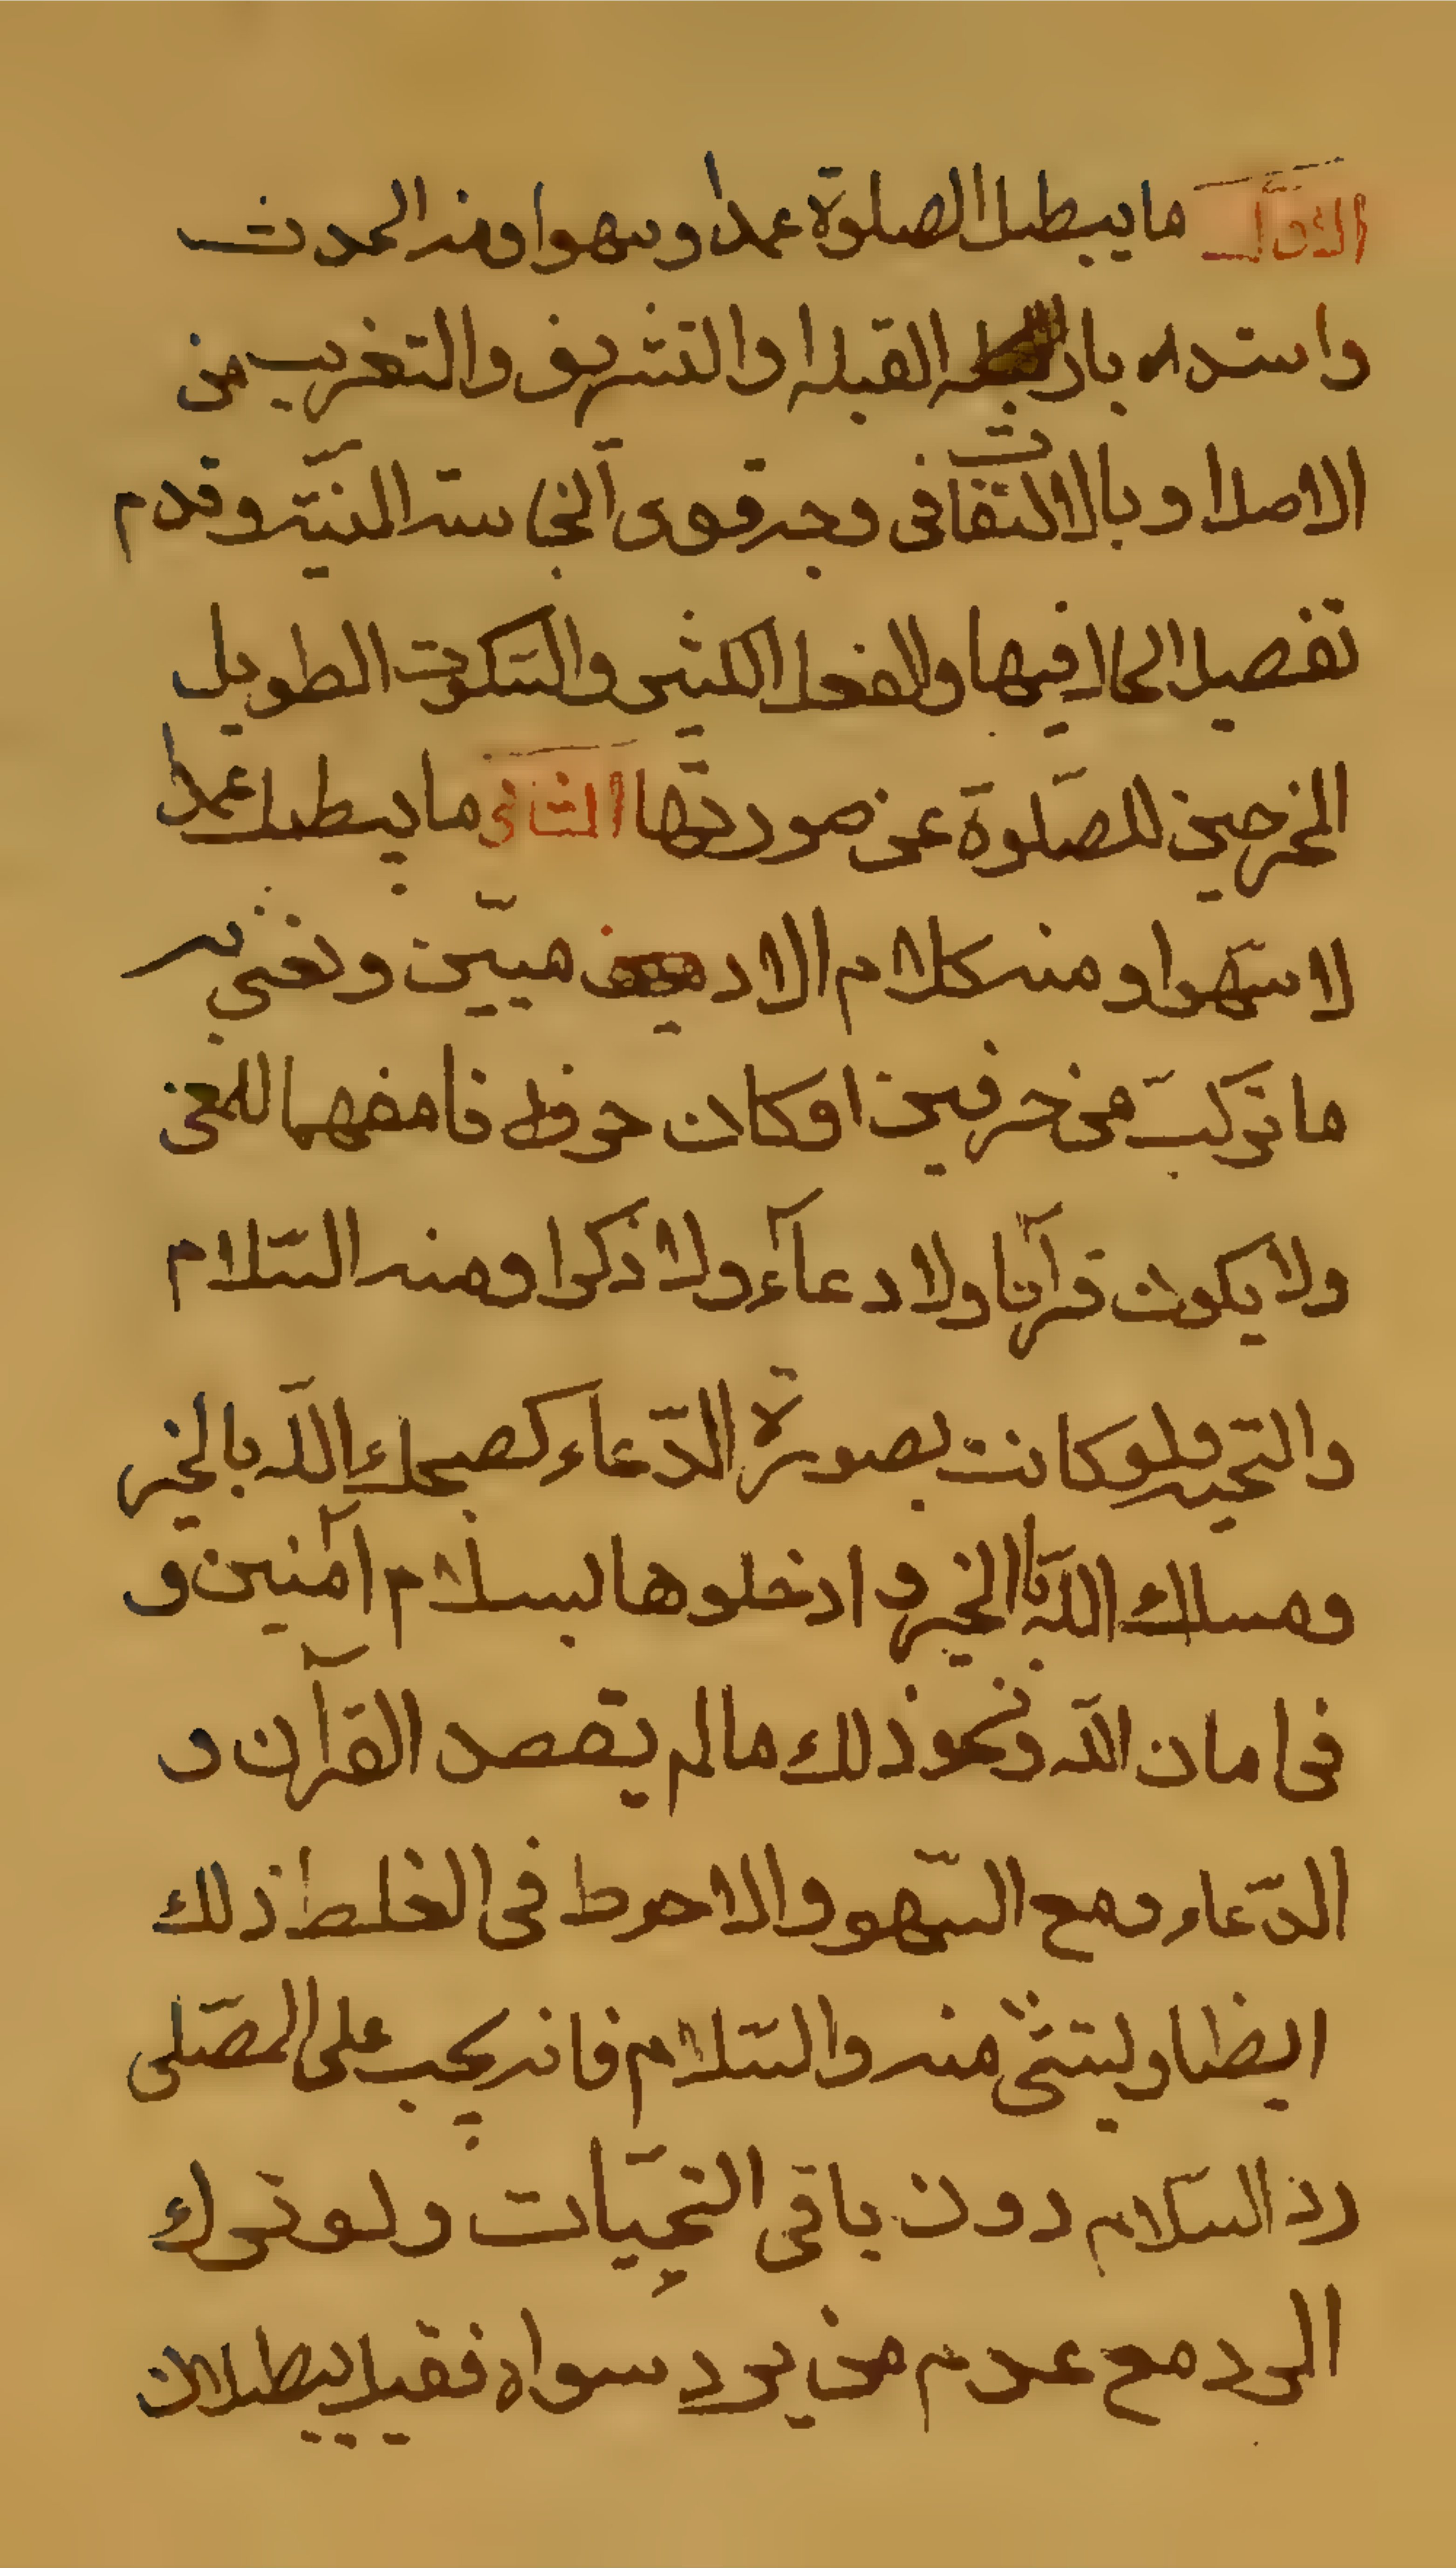 الاول ما يبطل الصلوة عمدا وسهوا ومنه الحدث
واستد القبله او التشريق والتغريب من
الاصل او بالالتفاتى وجه قوى النجاسته المنيّه وقدم
تفصيل الحال فيها والفعل الكثير والسّكوت الطويل
المخرجين للصّلوة عن صورتها الثانى ما يبطل عمدا
لا سهوا و منه كلام الاد ميّين ونعنى به
ما تركب من حرفين او كان حرفا مفهما للمعنى
ولا يكون قرآنا ولا دعآء ولا ذكرا ومنه السّلام
والتحيه ولو كانت بصورة الدّعاء كصبحك اللّه بالخير
ومسلك اللّه بالخير و ادخلوها بسلام آمنين و
فى امان اللّه ونحو ذلك مالم يقصد القرآن و
الدّعاء ومع السّهو والاحوط فى الغلط ذلك
ايضا وليتثنى منه والسّلام فانه يجب على المصّلى
رد السّلام دون باقى التحيّات ولو ترك
الرد مع عدم من يرد سواه فقيل يبطلان